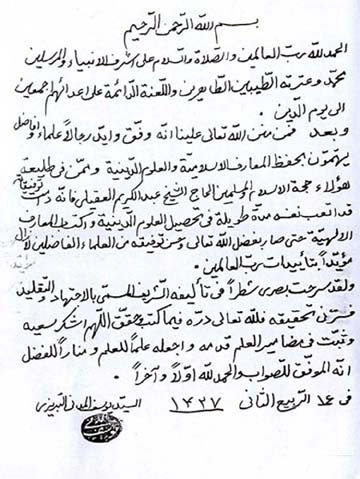 بسم الله الرحمن الرحیم
الحمد لله رب العالمین والصلاة والسلام علی اشرف الانبیاء والمرسلین
محمد وعترته الطیبین الطاهرین واللعنة الدائمة علی اعدائهم اجمعین
الی یوم الدین.
وبعد فمن منن الله تعالی علینا انه وفق واید رجالاً علماء وافاضل
یهتمون بحفظ المعارف الاسلامیة والعلوم الدینیة وممن فی طلیعة
هؤلاء حجة الاسلام والمسلمین الحاج الشیخ عبد الکریم العقیلی فانه دامت توفیقاته
قد اتعب نفسه مدة طویلة فی تحصیل العلوم الدینیة وکسب المعارف
الالهیة حتی صار بفضل الله تعالی وحسن توفیقه من العلماء الفاضلین لازال
مؤیداً بتأییدات رب العالمین.
ولقد سرحت بصری شطراً فی تألیفه الشریف المسمی بالاجتهاد والتقلید
فسرنی تحقیقه فلله تعالی دره فیما کتب وحقق اللهم اشکر سعیه
وثبت فی مضامیر العلم قدمه واجعله علماً للعلم ومناراً للفضل
انه الموفق للصواب والحمد لله اولاً وآخراً.
فی ١٤ الربیع الثانی ١٤٢٧ السید یوسف المدنی التبریزی